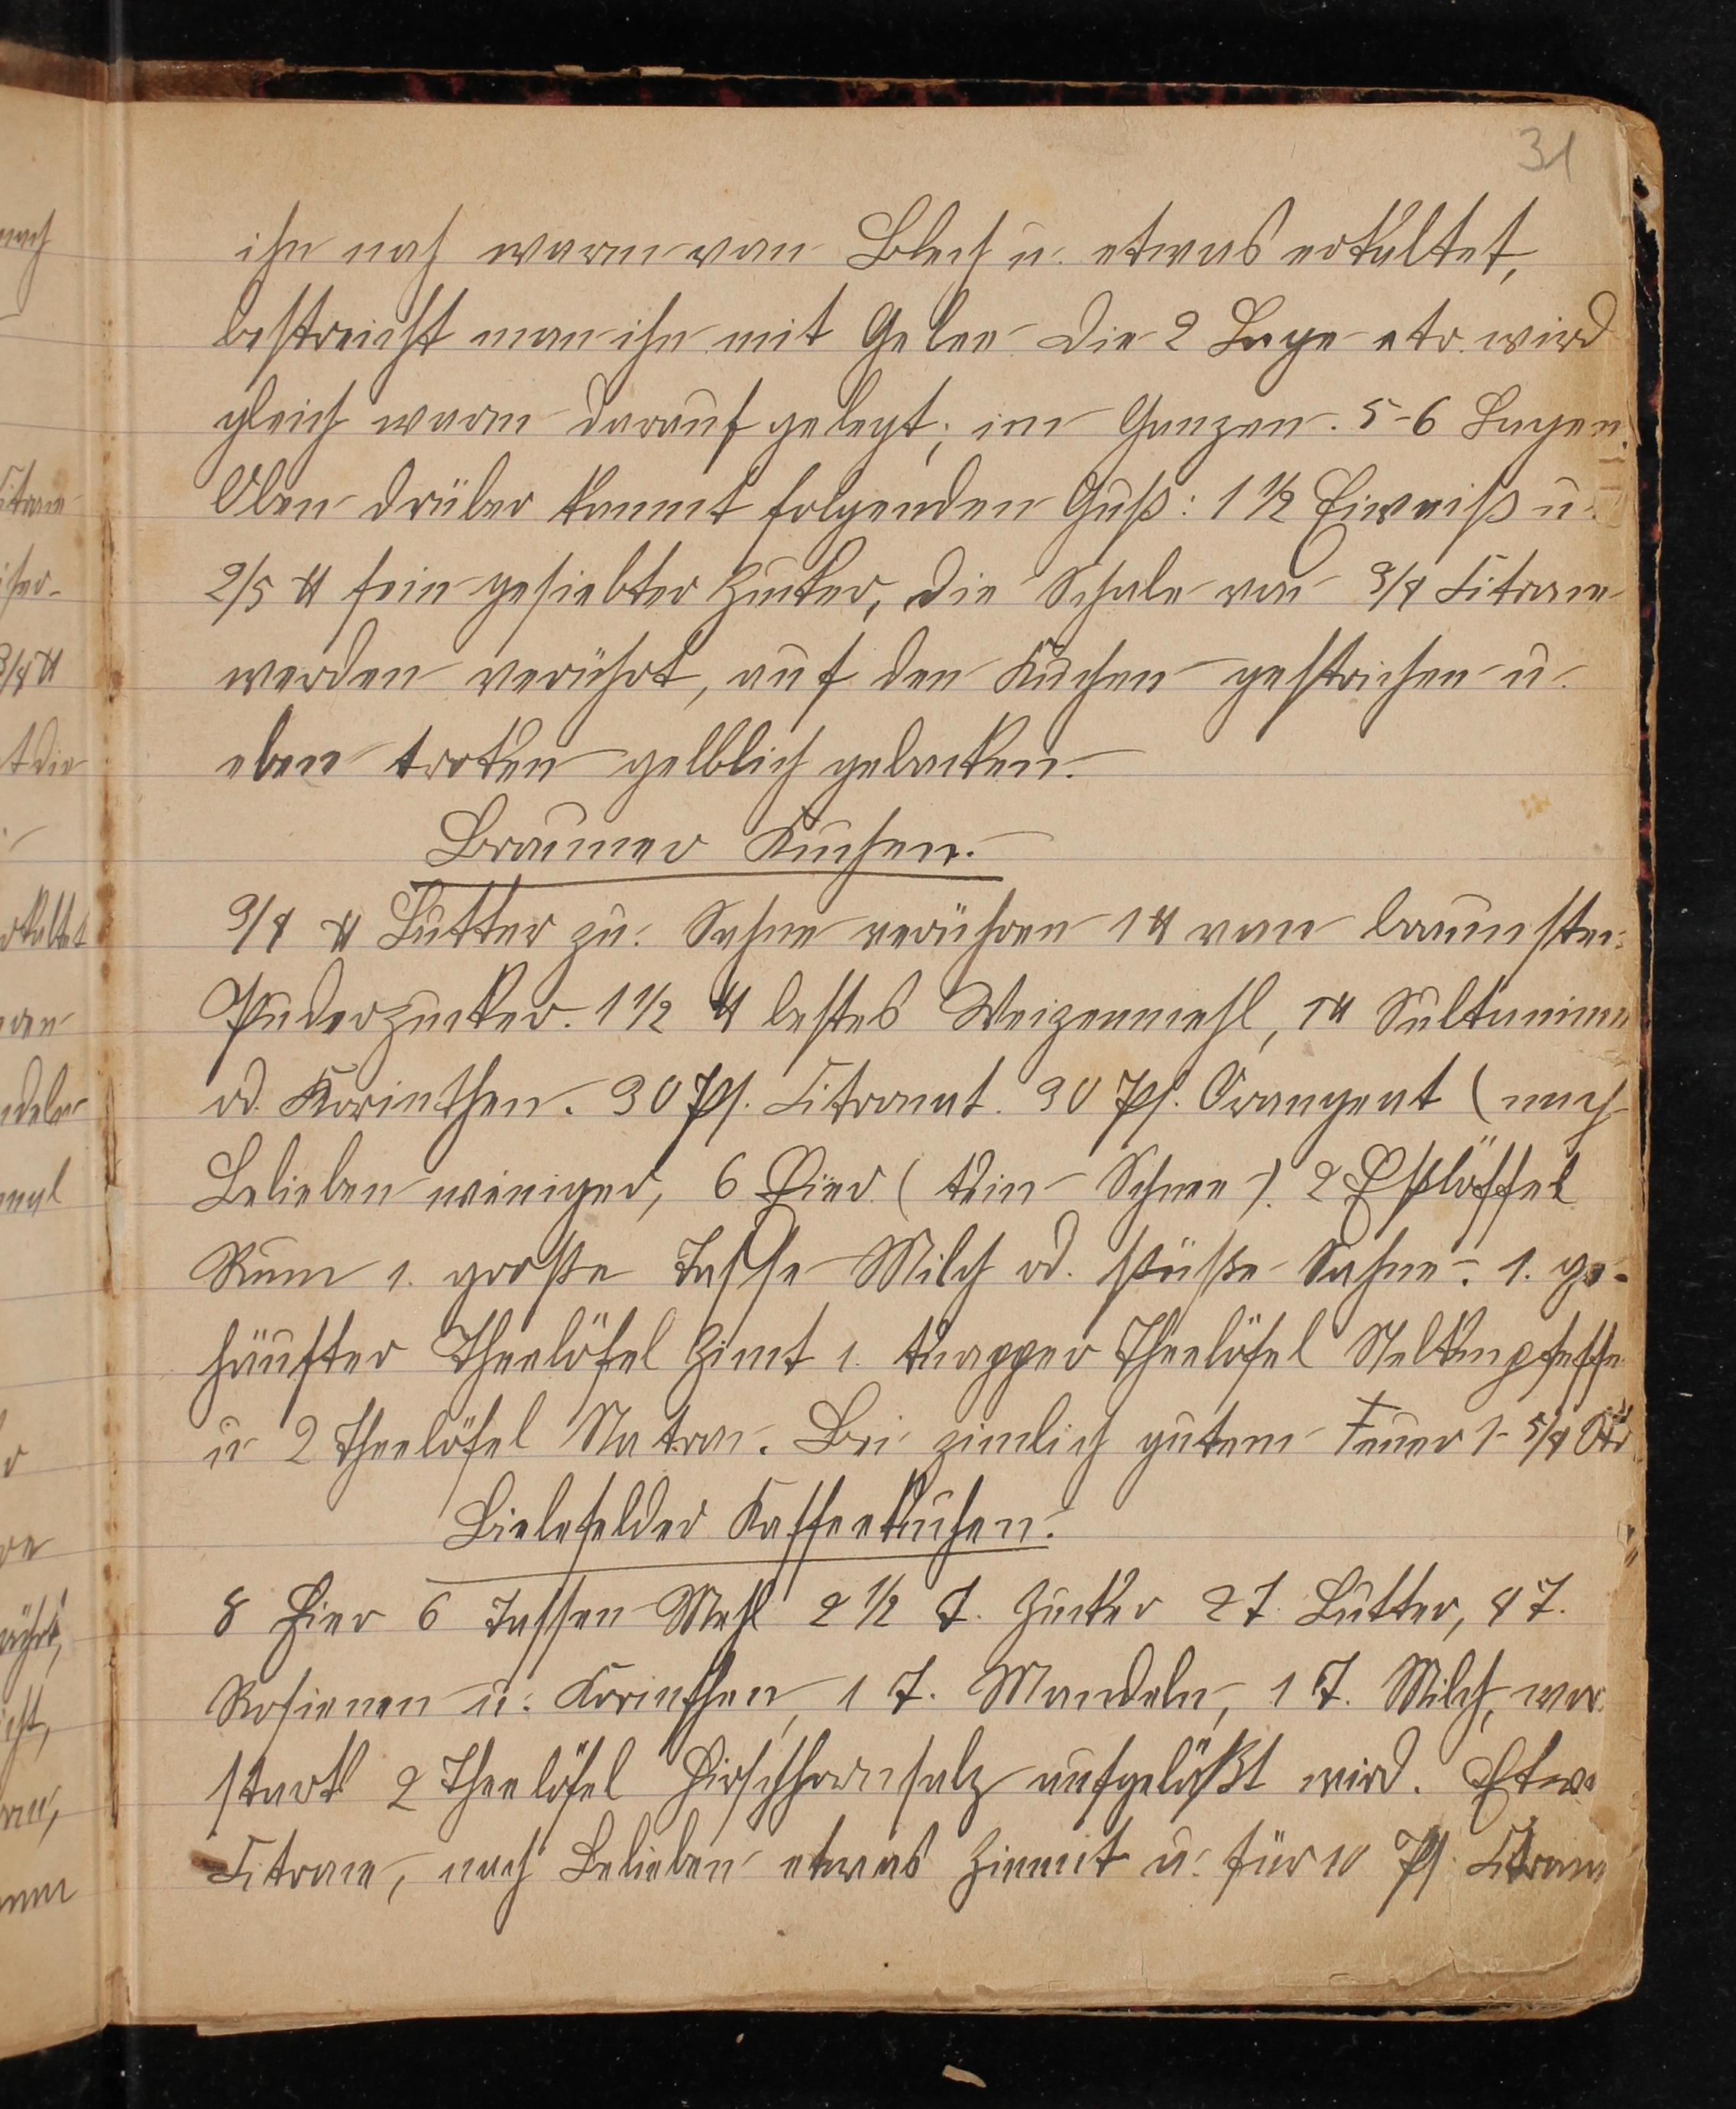 31
ihn noch warm vom Blech u. etwas erkaltet,
bestreicht man ihn mit Gelee Die 2 Lage etc. wird
gleich warm darauf gelegt; im Ganzen. 5-6 Lagen.
Oben drüber kommt folgenden Guß: 1 1/2 Eiweiß u.
2/5 ℔ fein gesiebter Zucker, die Schale von 3/4 Citrone
werden verührt, auf den Kuchen gestrichen u.
eben troken gelblich gebacken.
Brauner Kuchen.
3/4 ℔ Butter zu Sahne verühren 1 ℔ von braunsten
Puderzucker. 1 1/2 ℔ bestes Weizenmehl, 1 ℔ Sultaninen
od. Korinthen. 30 Pf. Citronat. 30 Pf. Orangeat (nach
Belieben weniger, 6 Eier (kein Schnee). 2 Eßlöffel
Rum 1. große Tasse Milch od. süße Sahne. 1. ge-
häufter Theelöfel Zimt 1. knapper Theelöfel Nelkenpfeffe
u 2 Theelöfel Natron. Bei zimlich gutem Feuer 1-5/4 Std
Bielefelder Kaffeekuchen.
8 Eier 6 Tassen Mehl 2 1/2 T. Zucker 2 T. Butter, 4 T.
Rosienen u. Korinthen, 1 T. Mandeln, 1 T. Milch, wor.
stark 2 Theelöfel Hirschhornsalz aufgelößt wird. Etwa
Citrone, nach Belieben etwas Zimmt u. für 10 Pf. Citron